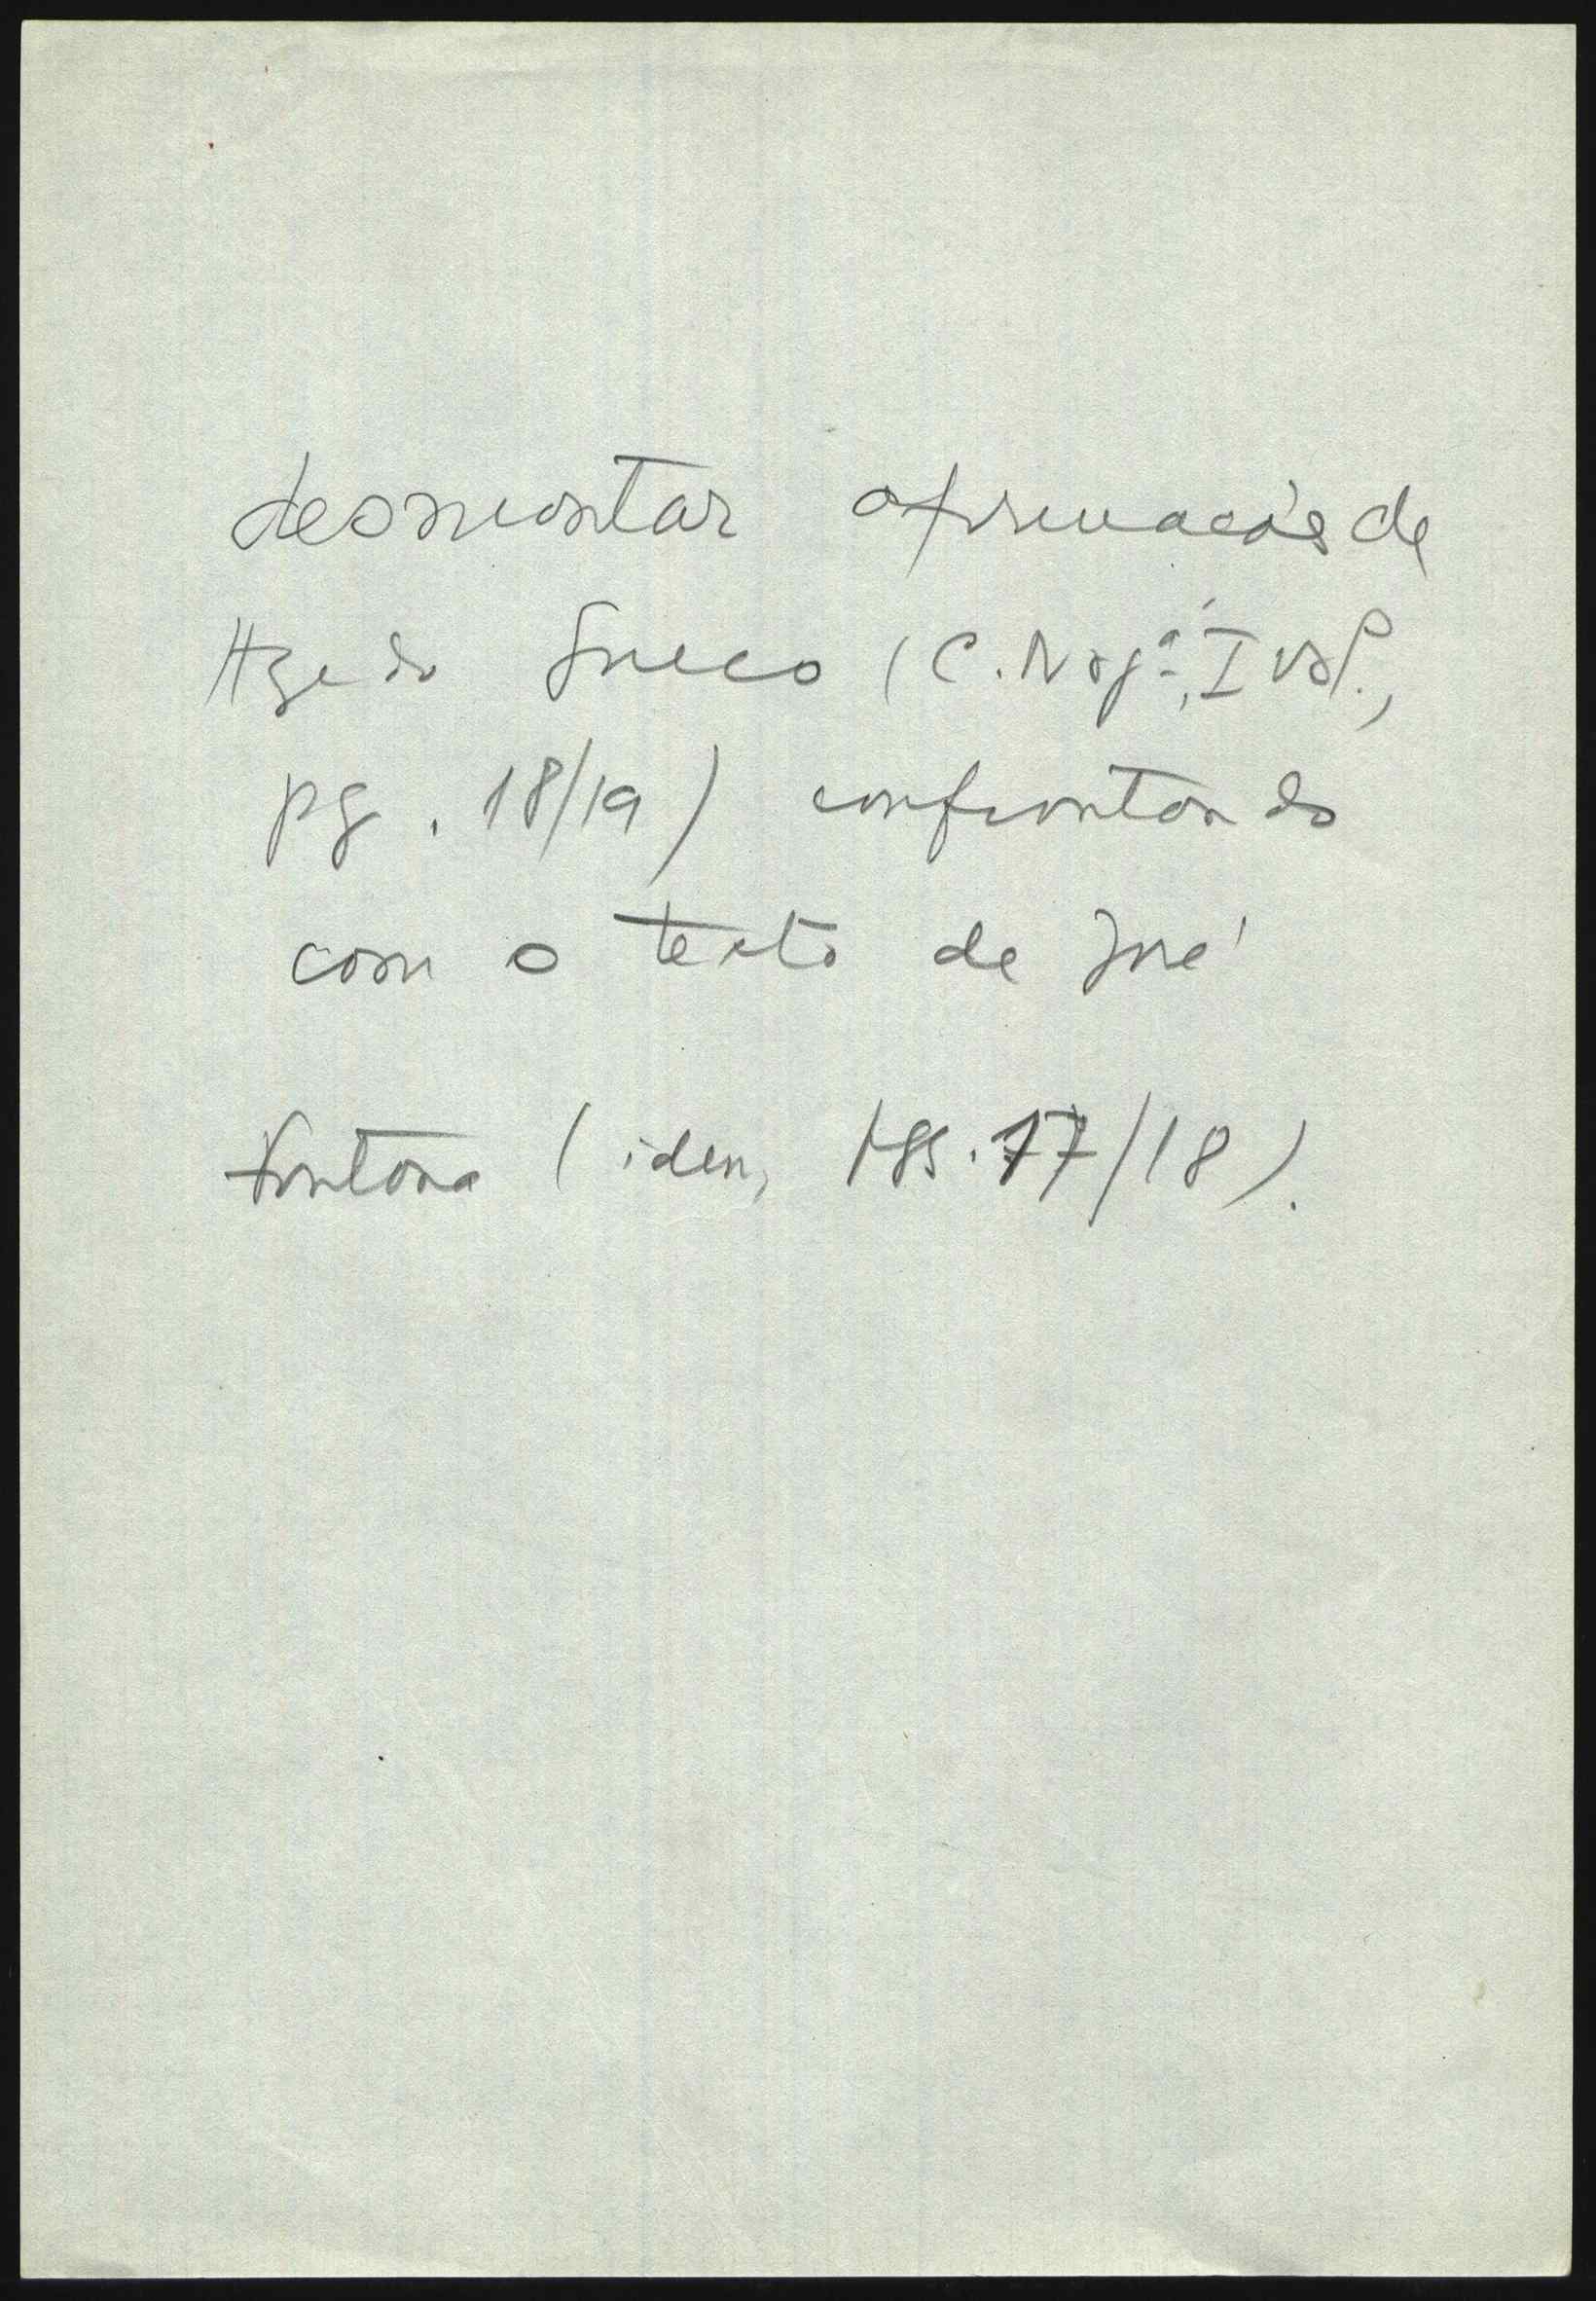 desmontar afirmação de
Azedo Gneco (C. Nog.ª, I vol.,
pg. 18/19) confrontando
com o texto de José
Fontana (idem, pgs. 17/18).